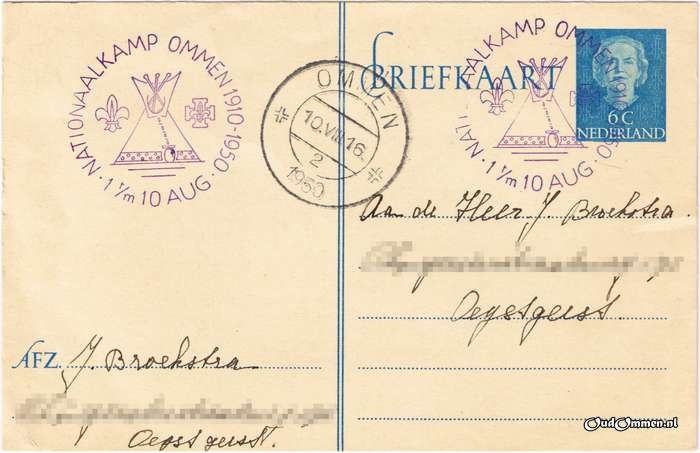 NATIONAALKAMP OMMEN 1910-1950
· 1 t/m 10 AUG ·
OMMEN
10.VIII.16.
2
1950
BRIEFKAART
NATIONAALKAMP OMMEN 1910-1950
· 1 t/m 10 AUG ·
6 C
NEDERLAND
Aan de Heer J. Broekstra
Oegstgeest.
AFZ. J. Broekstra
Oegstgeest.
OudOmmen.nl